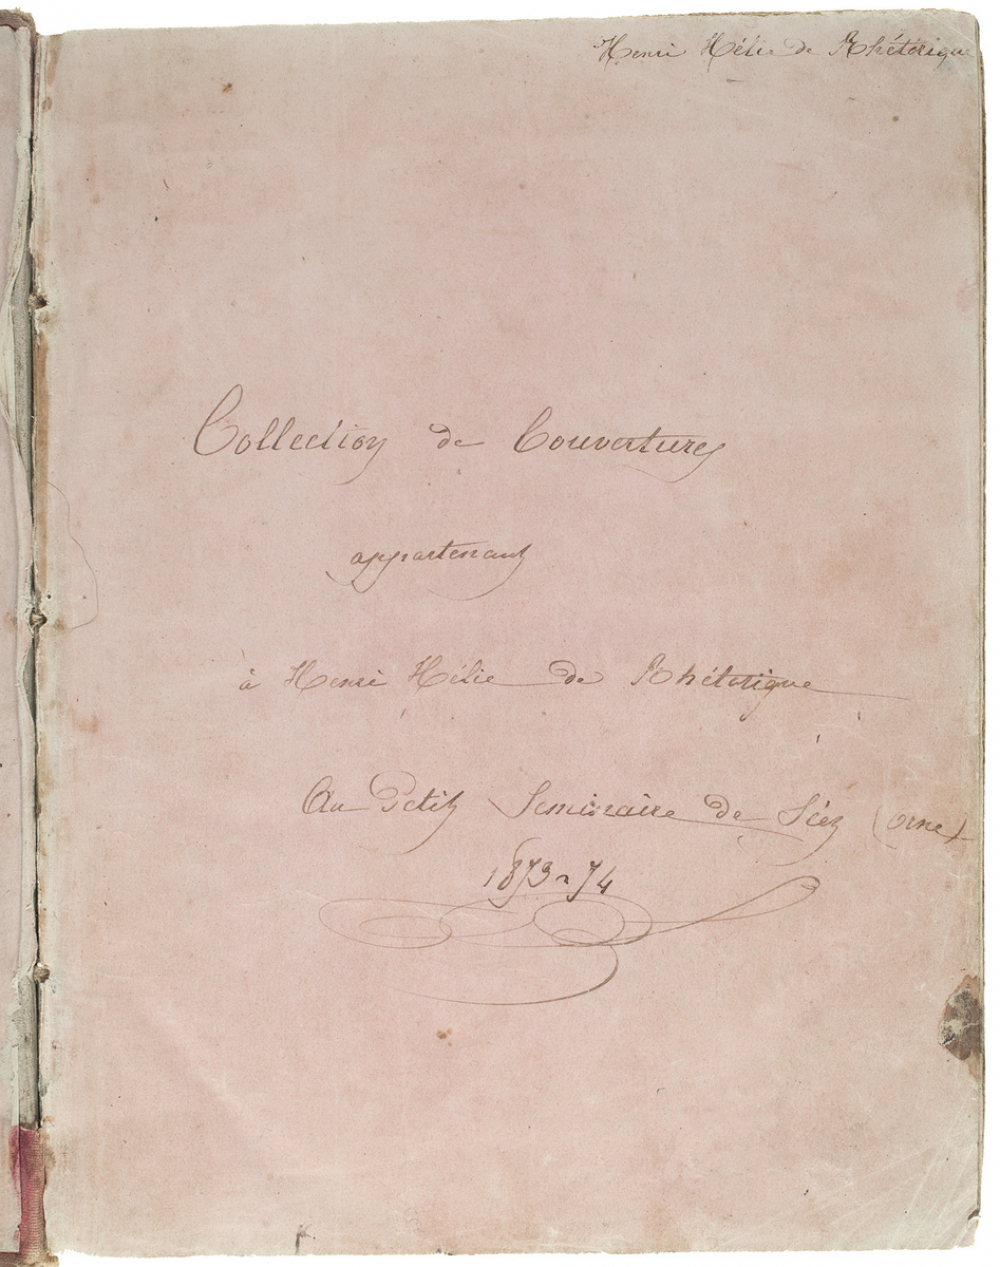 Henri Hélie de Rhétorique
Collection de Couvertures
appartenant
à Henri Hélie de Rhétorique
Au Petit Seminaire de Séez (Orne)
1873-74